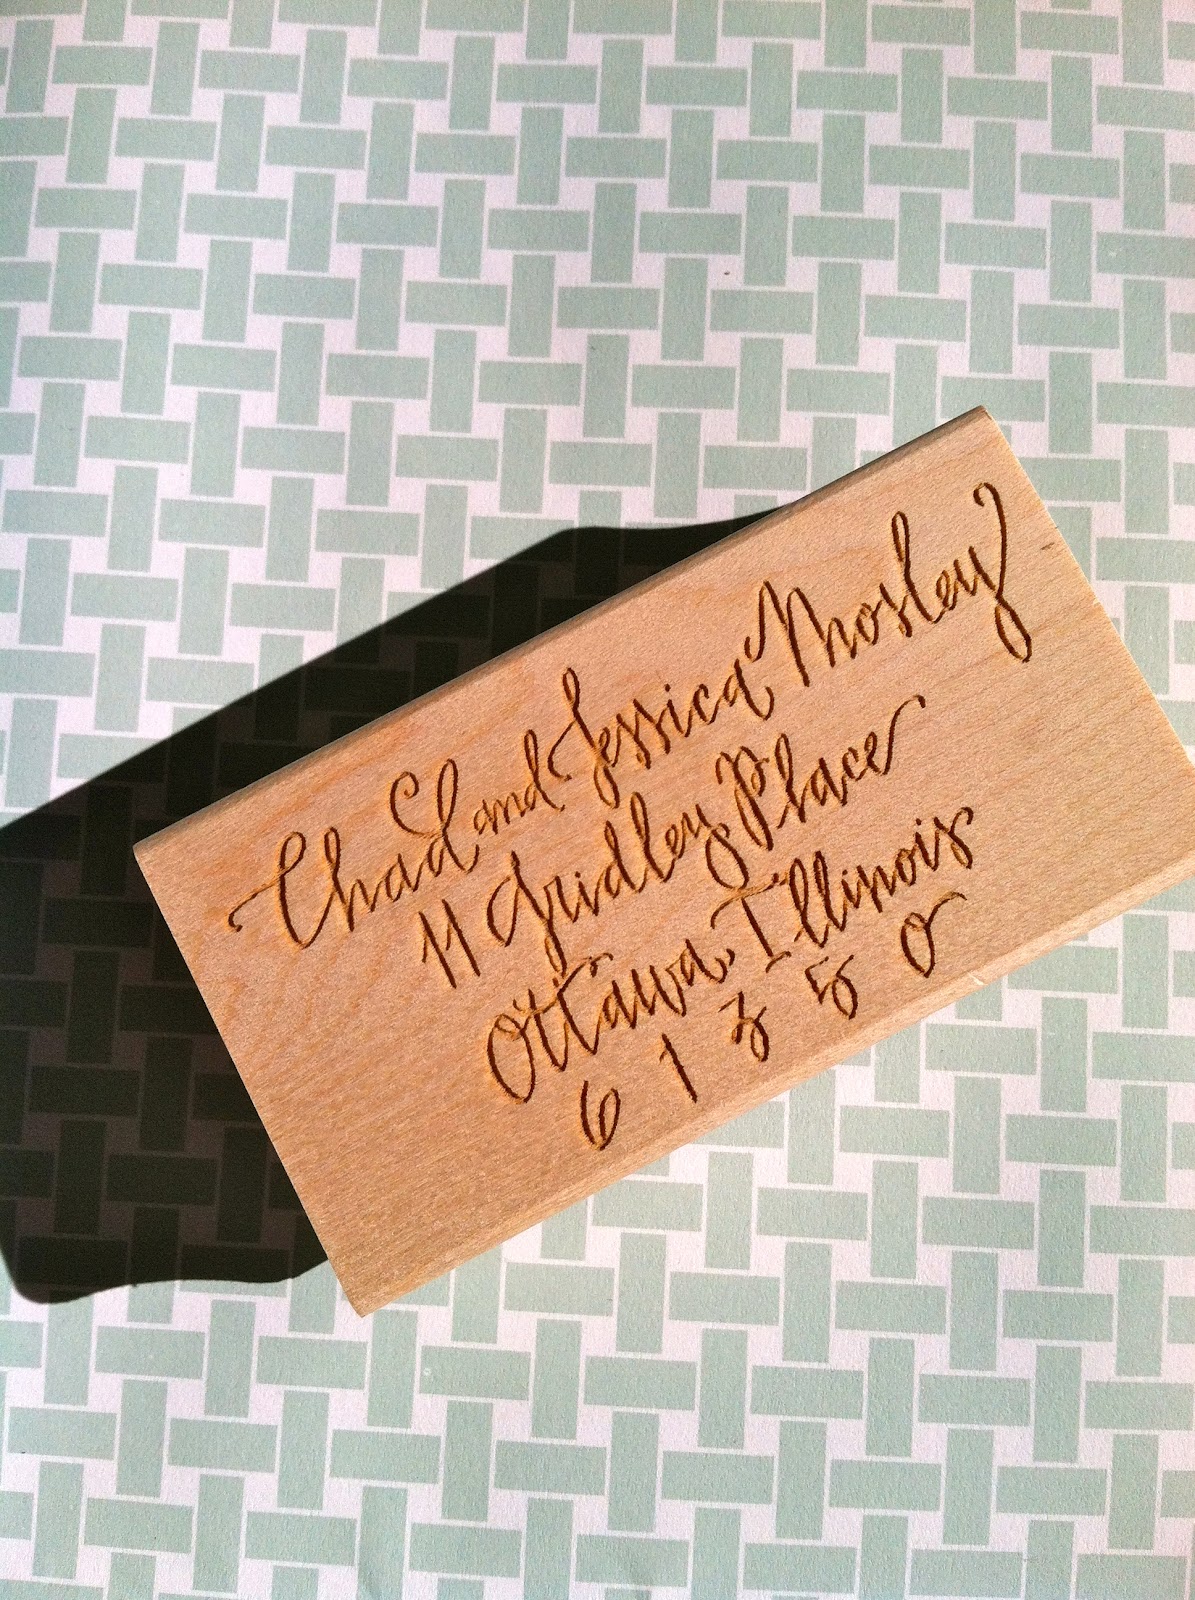 Chad and Jessica Mosley
11 Gridley Place
Ottawa, Illinois
6 1 3 5 0